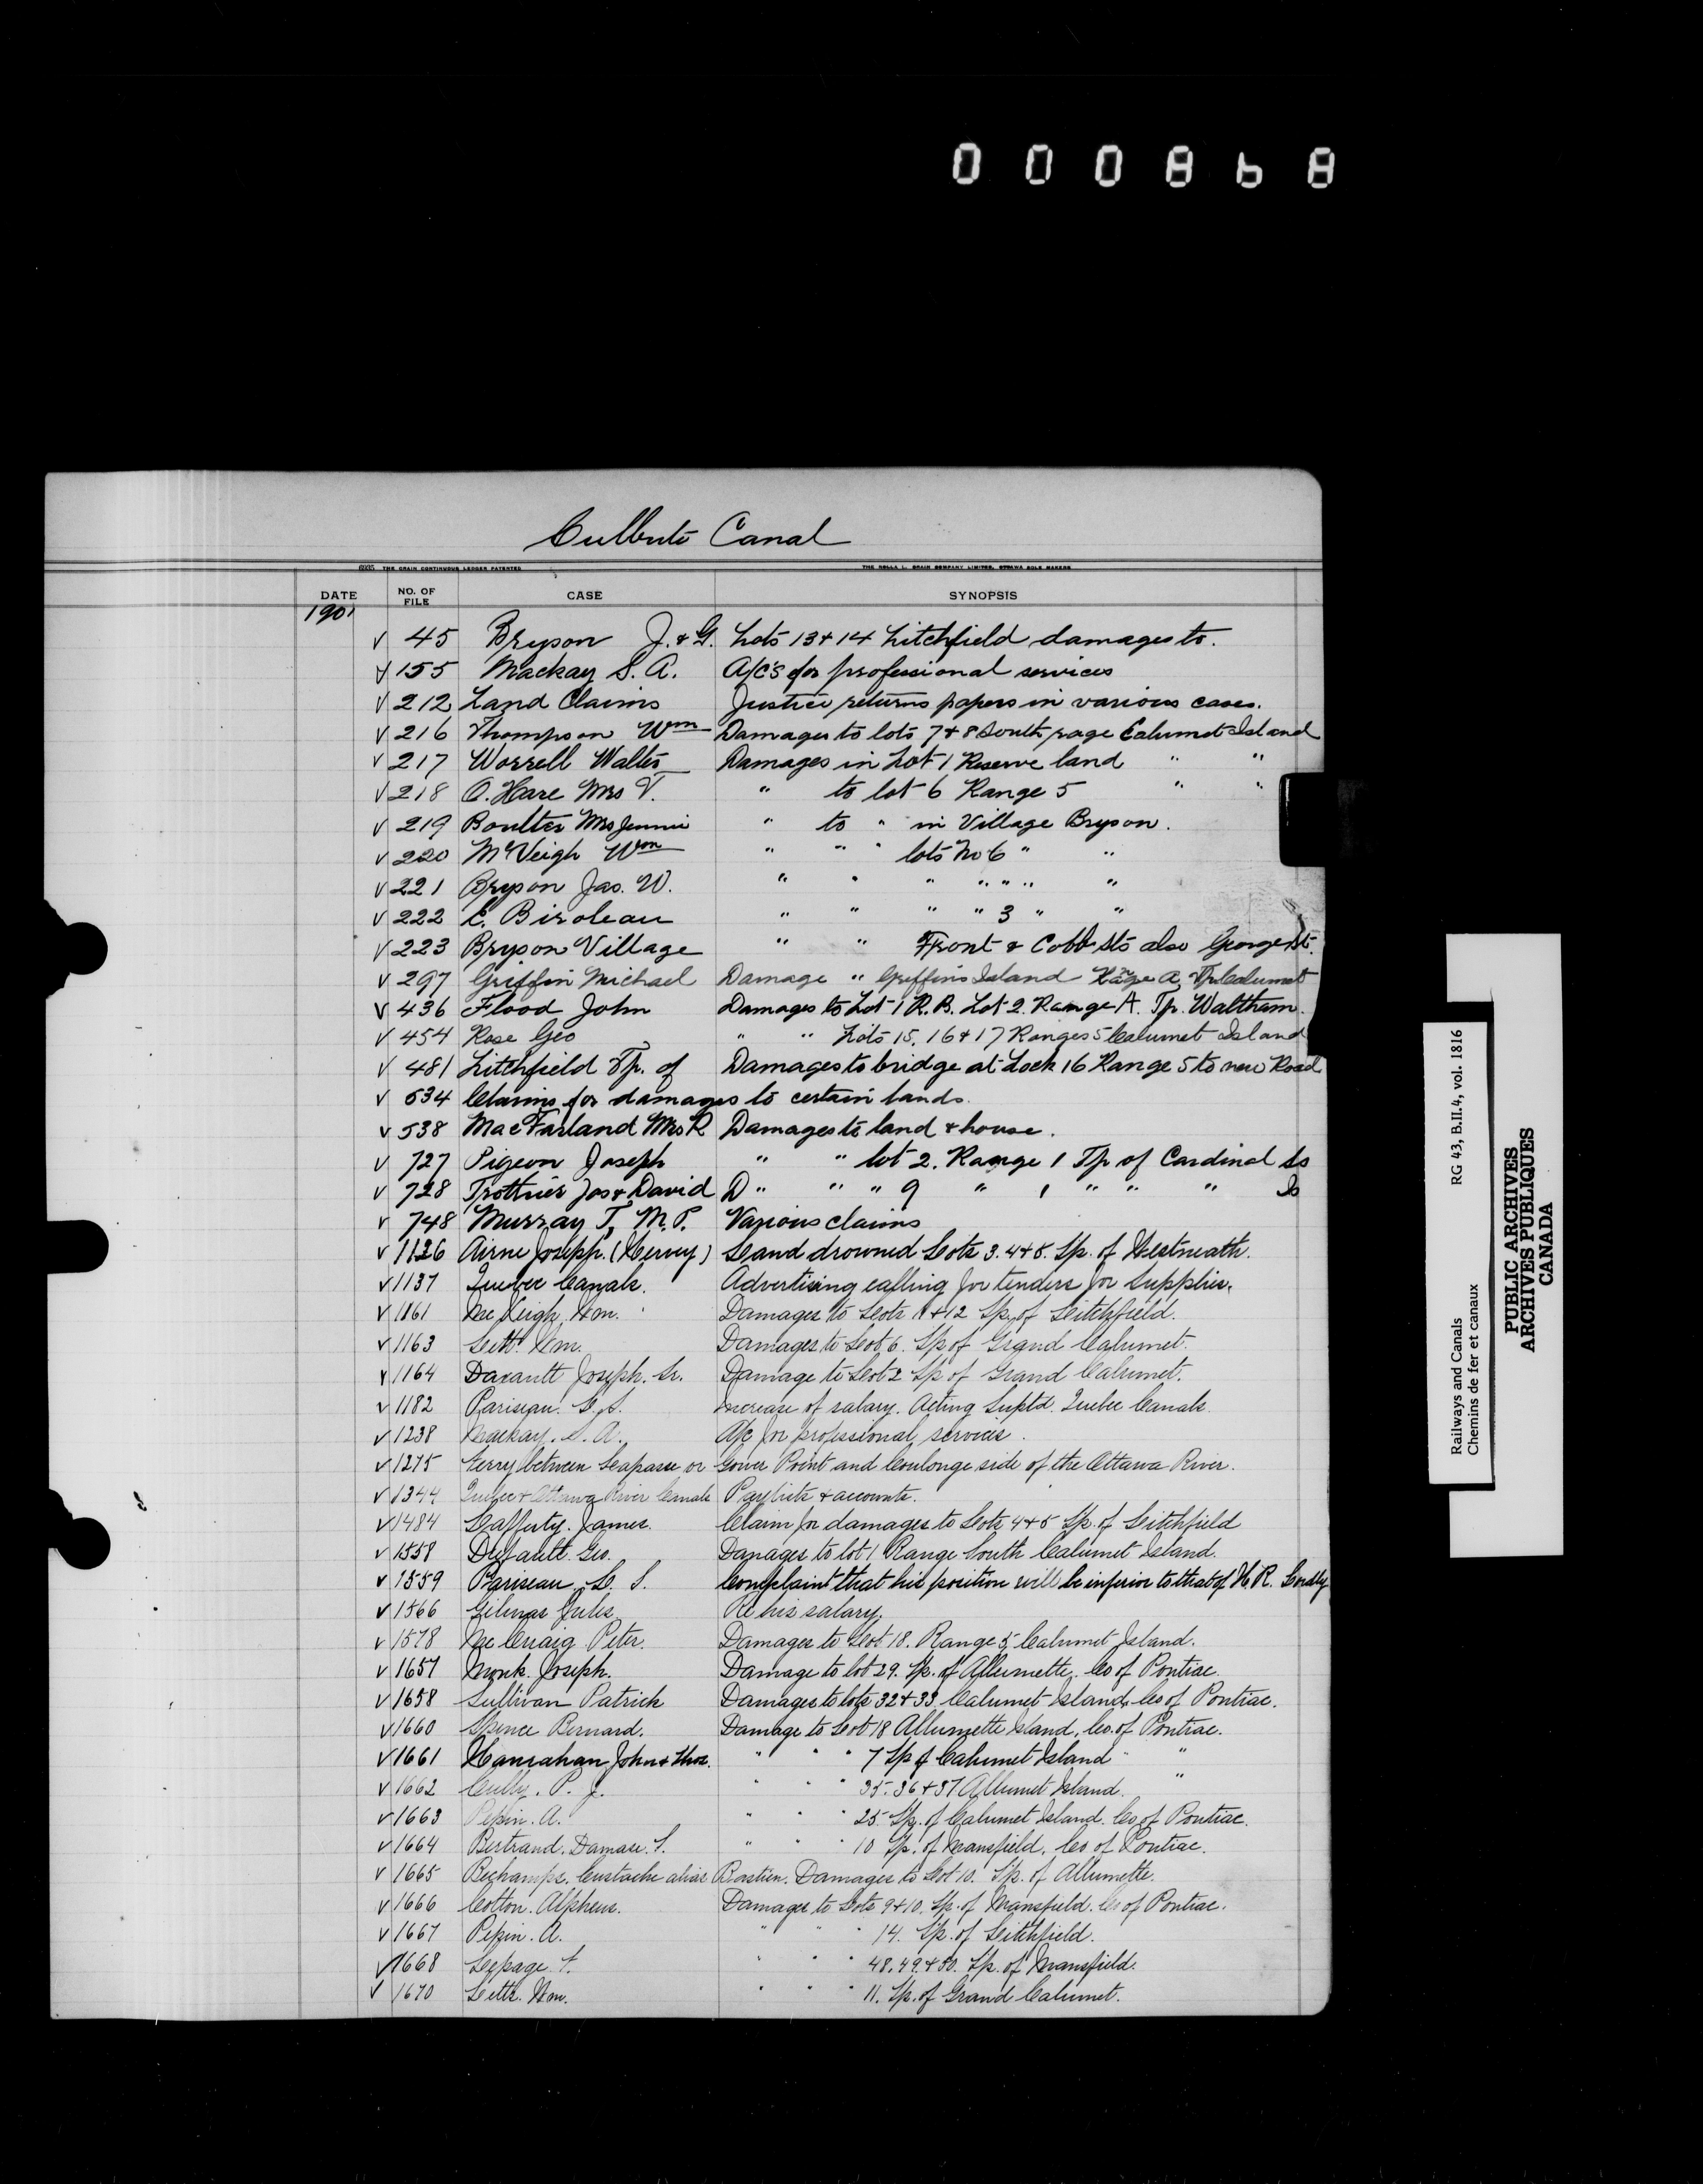 000868
Culbute Canal
6935 THE CRAIN CONTINUOUS LEDGER PATENTED THE ROLLA L. CRAIN COMPANY LIMITED, OTTAWA SOLE MAKERS
DATE NO. OF FILE CASE SYNOPSIS
1901
√ 45 Bryson J. & G. Lots 13 & 14 Litchfield damages to.
√ 155 Mackay S. A. A/c's for professional services
√ 212 Land Claims Justice returns papers in various cases.
√ 216 Thompson Wm Damages to lots 7 & 8 South rage Calumet Island
√ 217 Worrell Walter Damages in Lot 1 Reserve land " "
√ 218 O. Hare Mrs V. " to lot 6 Range 5 " "
√ 219 Boulter Mrs Jennie " to " in Village Bryson.
√ 220 McVeigh Wm " " " lots No 6 " "
√ 221 Bryson Jas. W. " " " " " " "
√ 222 C. Biroleau " " " " 3 " "
√ 223 Bryson Village " " Front & Cobb Sts also George St.
√ 297 Griffin Michael Damage " Griffins Island Range A, Tp Calumet
√ 436 Flood John Damages to Lot 1 R. B. Lot 2 Range A. Tp. Waltham.
√ 454 Rose Geo " " Lots 15, 16 & 17 Ranges 5 Calumet Island
√ 481 Litchfield Tp. of Damages to bridge at Lock 16 Range 5 to new Road
√ 534 Claims for damages to certain lands.
√ 538 MacFarland Mrs R Damages to land & house.
√ 727 Pigeon Joseph " " lot 2. Range 1 Tp of Cardinal Is
√ 728 Trottier Jos & David D " " " 9 " 1 " " " Is
√ 748 Murray T, M. P. Various claims
√ 1126 Airne Joseph. (Hervey) Land drowned Lots 3. 4 & 5. Tp. of Westmeath.
√ 1137 Quebec Canals. Advertising calling for tenders for supplies.
√ 1161 McVeigh, Wm. Damages to Lots 11 & 12 Tp. of Litchfield.
√ 1163 Letts. Wm. Damages to Lot 6. Tp of Grand Calumet.
√ 1164 Darault Joseph. Sr. Damage to Lot 2 Tp of Grand Calumet.
√ 1182 Pariseau. L. S. Increase of salary. Acting Suptd. Quebec Canals.
√ 1238 Mackay. S. A. A/c for professional services.
√ 1275 Ferry between Lapasse or Gower Point and Coulonge side of the Ottawa River.
√ 1344 Quebec & Ottawa River Canals Paylists & accounts.
√ 1484 Lafferty. James. Claim for damages to Lots 4 & 5 Tp. of Litchfield
√ 1558 Dufault. Geo. Damages to lot 1 Range South Calumet Island.
√ 1559 Pariseau, L. S. Complaint that his position will be inferior to that of H. R. Cordly
√ 1566 Gilmas Jules Re his salary.
√ 1578 McCuaig Peter. Damages to Lot 18. Range 5 Calumet Island.
√ 1657 Monk. Joseph. Damage to lot 29. Tp. of Allumette. Co of Pontiac.
√ 1658 Sullivan Patrick Damages to lots 32 & 33 Calumet Island, Co of Pontiac.
√ 1660 Spence Bernard. Damage to Lot 18 Allumette Island, Co. of Pontiac.
√ 1661 Hanrahan John & Thos. " " " 7 Tp of Calumet Island " "
√ 1662 Cully. P. J. " " " 35. 36 & 37 Allumet Island. "
√ 1663 Pepin. A. " " " 25 Tp. of Calumet Island. Co of Pontiac.
√ 1664 Bertrand. Damase. S. " " " 10 Tp. of Mansfield. Co of Pontiac.
√ 1665 Bechamps. Eustache alias Bastien. Damages to Lot 10. Tp. of Allumette.
√ 1666 Colton. Alpheus. Damages to Lots 9 & 10. Tp. of Mansfield. Co of Pontiac.
√ 1667 Pepin. A. " " " 14. Tp. of Litchfield.
√ 1668 Lepage. F. " " " 48. 49. & 50. Tp. of Mansfield.
√ 1670 Letts. Wm. " " " 11. Tp. of Grand Calumet.
Railways and Canals RG 43, B.II.4, vol. 1816
Chemins de fer et canaux
PUBLIC ARCHIVES
ARCHIVES PUBLIQUES
CANADA